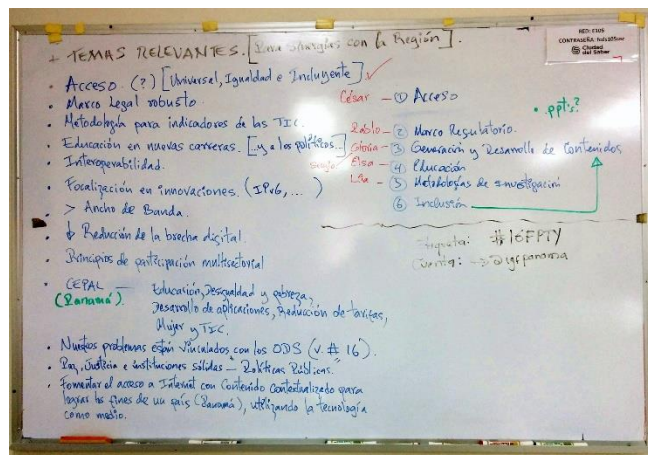 + TEMAS RELEVANTES. [Para Sinergias con la Región].
• Acceso. (?) [Universal, Igualdad e Incluyente]. ✓
• Marco Legal robusto.
• Metodología para indicadores de las TIC.
• Educación en nuevas carreras. [...y a los políticos...]
• Interoperabilidad.
• Focalización en innovaciones. (IPv6, ... )
• > Ancho de Banda.
• Reducción de la brecha digital.
• Principios de participación multisectorial
• CEPAL — Educación, Desigualdad y pobreza,
(Panamá). Desarrollo de aplicaciones, Reducción de tarifas,
Mujer y TIC.
• Nuestros problemas están vinculados con los ODS (v. # 16).
• Paz, Justicia e instituciones sólidas — Políticas Públicas."
• Fomentar el acceso a Internet con Contenido contextualizado para
lograr los fines de un país (Panamá), utilizando la tecnología
como medio.
César — ① Acceso
Pablo — ② Marco Regulatorio.
Gloria — ③ Generación y Desarrollo de Contenidos
Elsa — ④ Educación
Lía — ⑤ Metodologías de Investigación
⑥ Inclusión
• ppt's?
Etiqueta: #IGFPTY
Cuenta: → @igfpanama
RED: E105
CONTRASEÑA:
Ciudad
del Saber